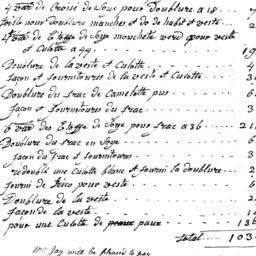 4 de Croisé de Soye pour doublure a 18 . . . 7
toille pour doublure manches et dos de habit et veste . . 2
de Etoffe de Soye moucheté verd pour veste
et Culotte a 44 . . . . 19
Doublure de la veste et Culotte . . . 4
façon et fournitures de la veste et Culotte . . . 3
Doublure du frac de Camelotte . . . 6
façon et fournitures du frac . . . 3
6 des Etoffe de Soye pour frac a 36 . . . 21
Doublure du frac en Soye . . . 6
façon du frac et fournitures . . . 3
redoublé une Culotte blanc et fourni la doublure . . 2
fourni de pour veste . . . 6
Doublure de la veste . . . 2
façon de la veste . . . 1
pour une Culotte de paux . . . 13
total . . . . 103
Mr Jay will be pleased to pay